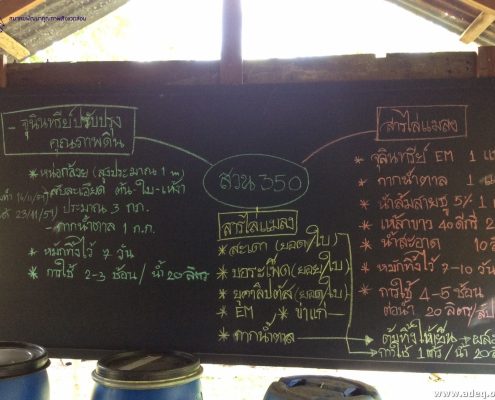 - จุลินทรีย์ปรับปรุง
คุณภาพดิน
* หน่อกล้วย (สูงประมาณ 1 m)
สับละเอียด ต้น-ใบ-เหง้า
ประมาณ 3 กก.
* กากน้ำตาล 1 ก.ก.
* หมักทิ้งไว้ 7 วัน
* การใช้ 2-3 ช้อน / น้ำ 20 ลิตร
สวน 350
สารไล่แมลง
* สะเดา (ยอด/ใบ)
* บอระเพ็ด (ยอด/ใบ)
* ยูคาลิปตัส (ยอด/ใบ)
* EM * ข่าแก่
* กากน้ำตาล
ต้มทิ้งให้เย็น
การใช้ 1 ลิตร / น้ำ 20
สารไล่แมลง
* จุลินทรีย์ EM 1
* กากน้ำตาล 1
* น้ำส้มสายชู 5% 1
* เหล้าขาว 40 ดีกรี 2
* น้ำสะอาด 10
* หมักทิ้งไว้ 7-10 วัน
* การใช้ 4-5 ช้อน
ต่อน้ำ 20 ลิตร
www.adeq.o